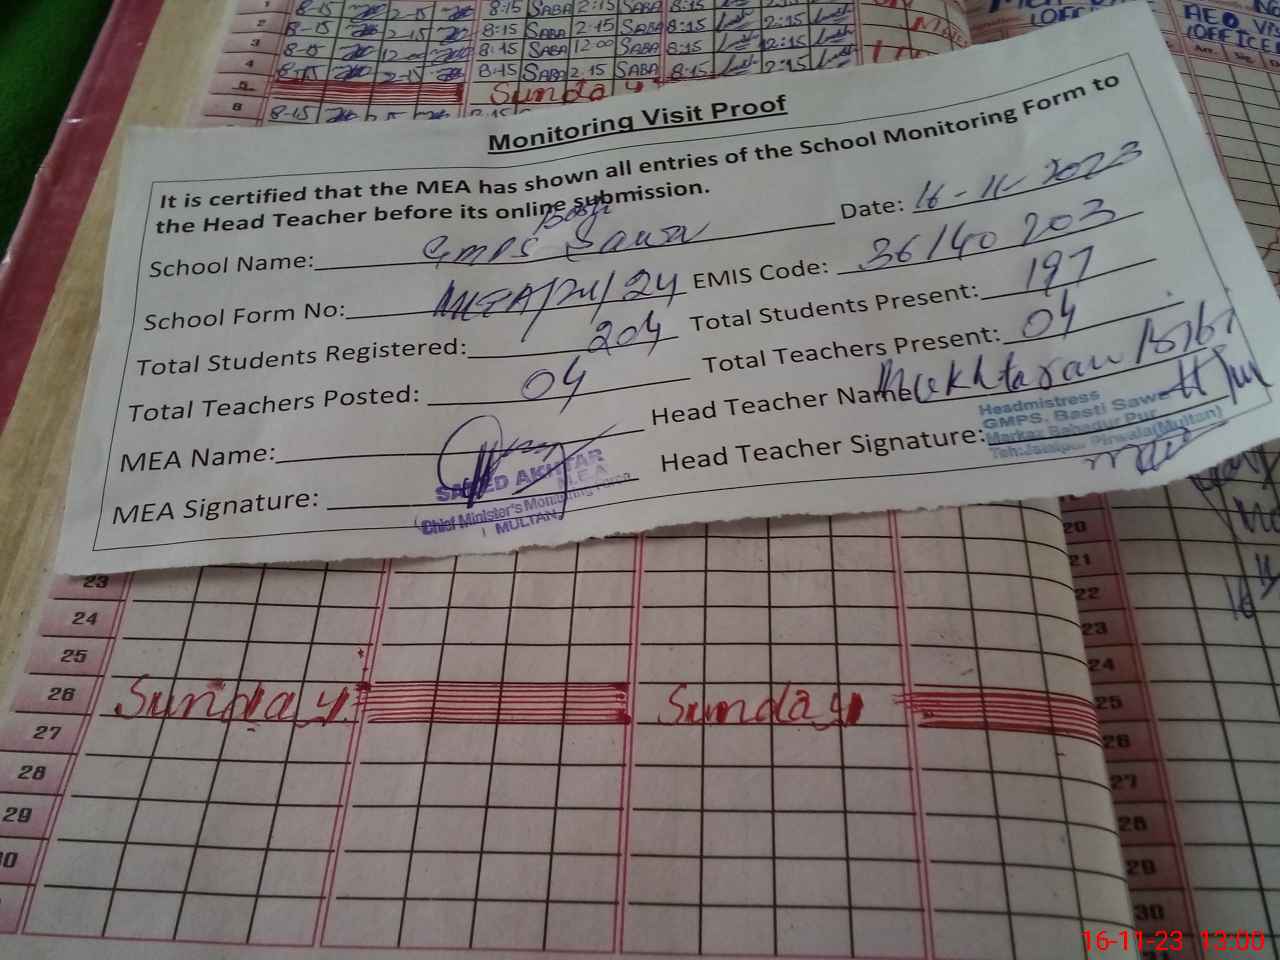 1
8-15
2-15
8:15 SABA 2:15 SABA 8:15
2:15
2
8-15
2-15
8:15 SABA 2:15 SABA 8:15
2:15
3
8-15
12:00
8:15 SABA 12:00 SABA 8:15
2:15
4
8-15
2-15
8:15 SABA 2:15 SABA 8:15
2:15
5
Sunday
6
8-15
AEO VIS
(OFFICE
(OFFICE
Monitoring Visit Proof
It is certified that the MEA has shown all entries of the School Monitoring Form to
the Head Teacher before its online submission.
School Name: GMPS Basti Sawa Date: 16-11-2023
School Form No: MEA/24 EMIS Code: 36140203
Total Students Registered: 204 Total Students Present: 197
Total Teachers Posted: 04 Total Teachers Present: 04
MEA Name: Head Teacher Name: Mukhtaran Bibi
MEA Signature: Head Teacher Signature:
SAEED AKHTAR
M.E.A
Chief Minister's Monitoring Force
MULTAN
Headmistress
GMPS. Basti Sawa
Markaz Bahadur Pur
Teh:Jalalpur Pirwala(Multan)
23
24
25
26 Sunday Sunday
27
28
29
30
20
21
22
23
24
25
26
27
28
29
30
16-11-23 13:00